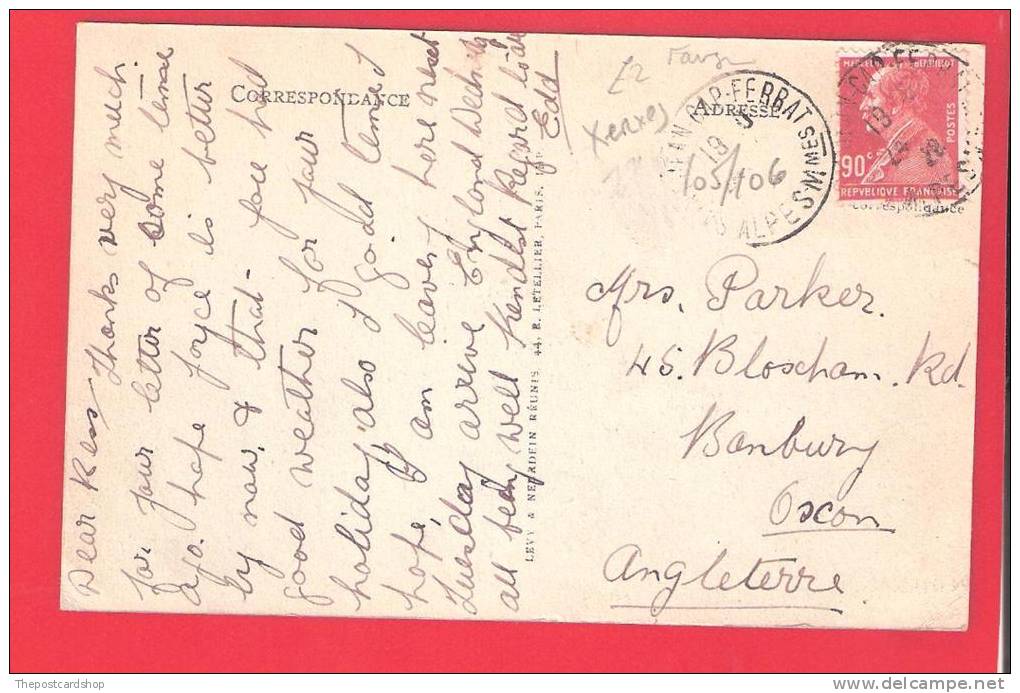 CORRESPONDANCE
ADRESSE
Dear Kess Thanks very much.
for your letter of some time
ago. hope Joyce is better
by now, & that you had
good weather for your
holiday, also a good time I
hope, I am leaving here next
Tuesday arrive England Wednesday
all being well Kindest Regards to all
Edd
LEVY & NEURDEIN RÉUNIS, 44, R. LETELLIER, PARIS, IMP.
£2
Xerxes
105/106
CAP-FERRAT
ALPES MMES
19
MARCELIN BERTHELOT
POSTES
90c
REPVBLIQVE FRANÇAISE
Correspondance
Mrs. Parker.
45. Bloxham. Rd.
Banbury
Oxon
Angleterre
Thepostcardshop
www.delcampe.net